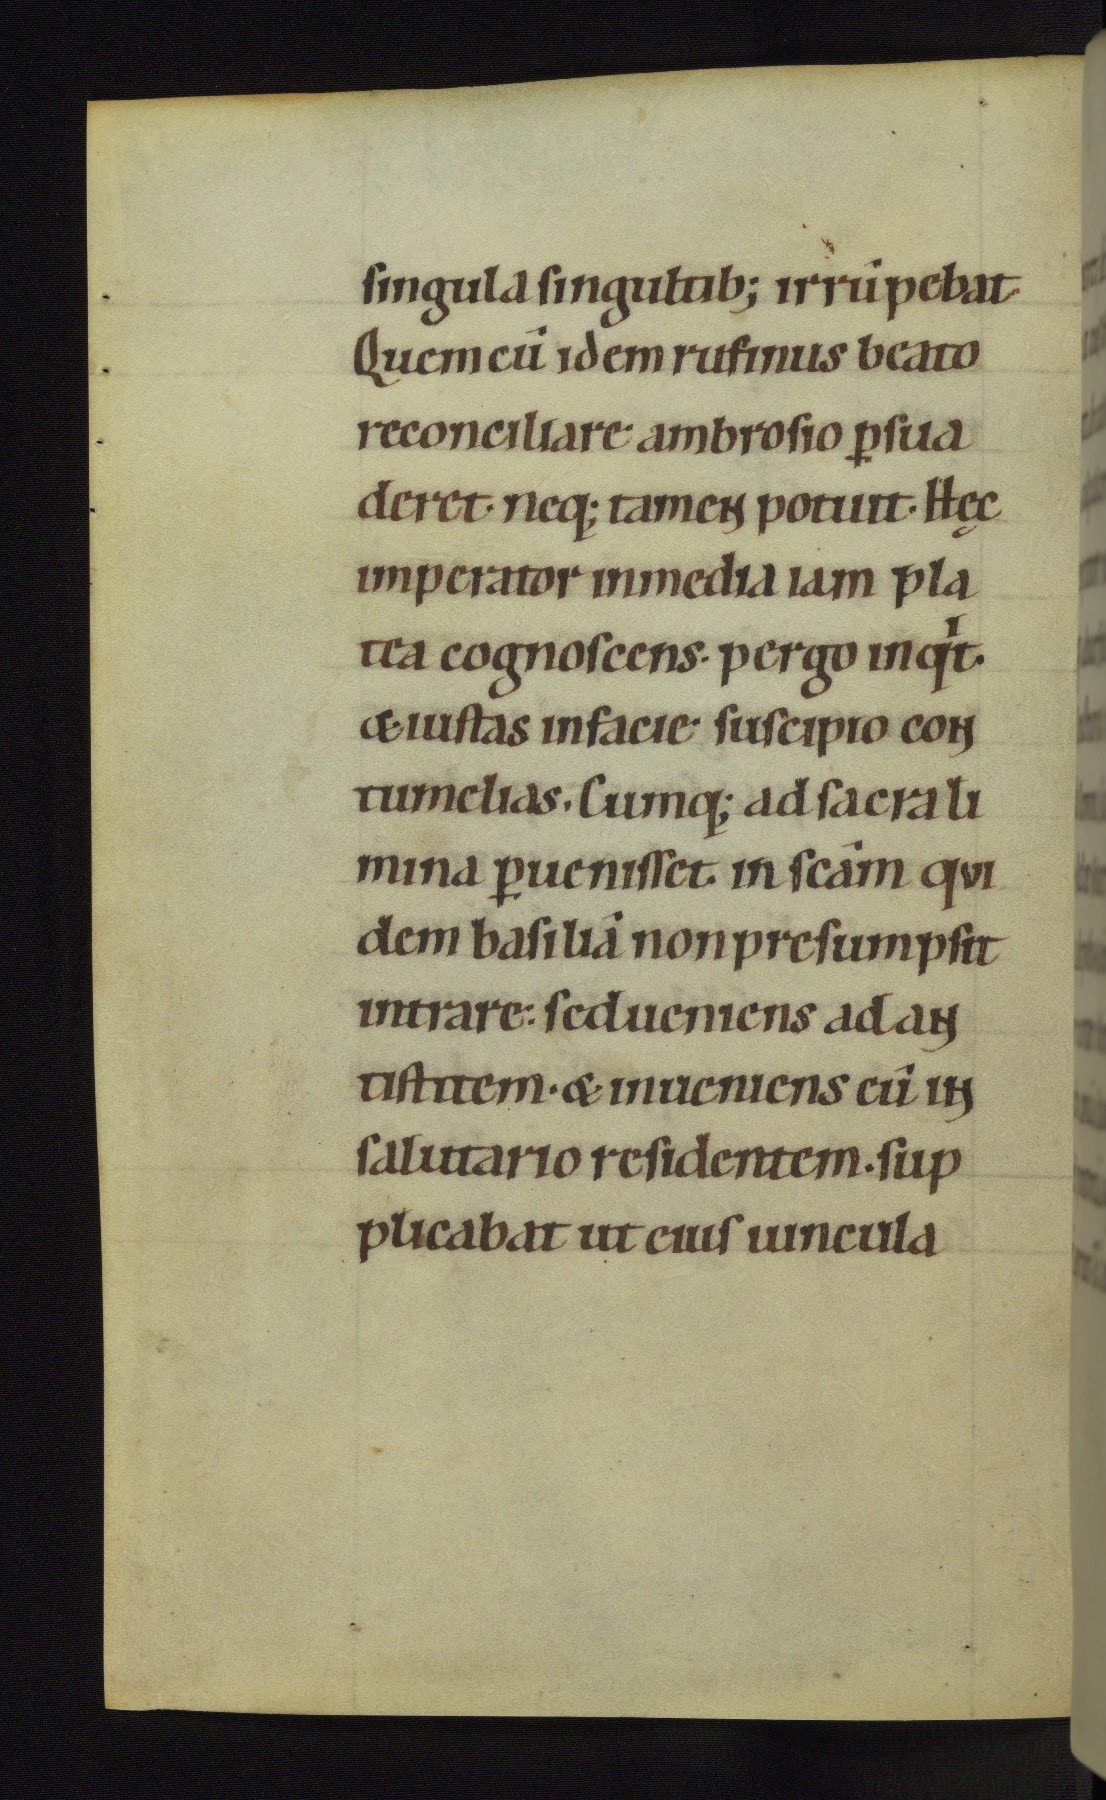 singula singultib; irrūpebat.
Quem cū idem rufinus beato
reconciliare ambrosio ꝑsua
deret. neq; tamen potuit. Hęc
imperator inmedia iam pla
tea cognoscens. pergo inqͥt.
& iustas infacie suscipio con
tumelias. Cumq; ad sacra li
mina ꝑuenisset. in scām qui
dem basiliā non presumpsit
intrare: sed ueniens ad an
tistitem. & inueniens eū in
salutario residentem. sup
plicabat ut eius uincula